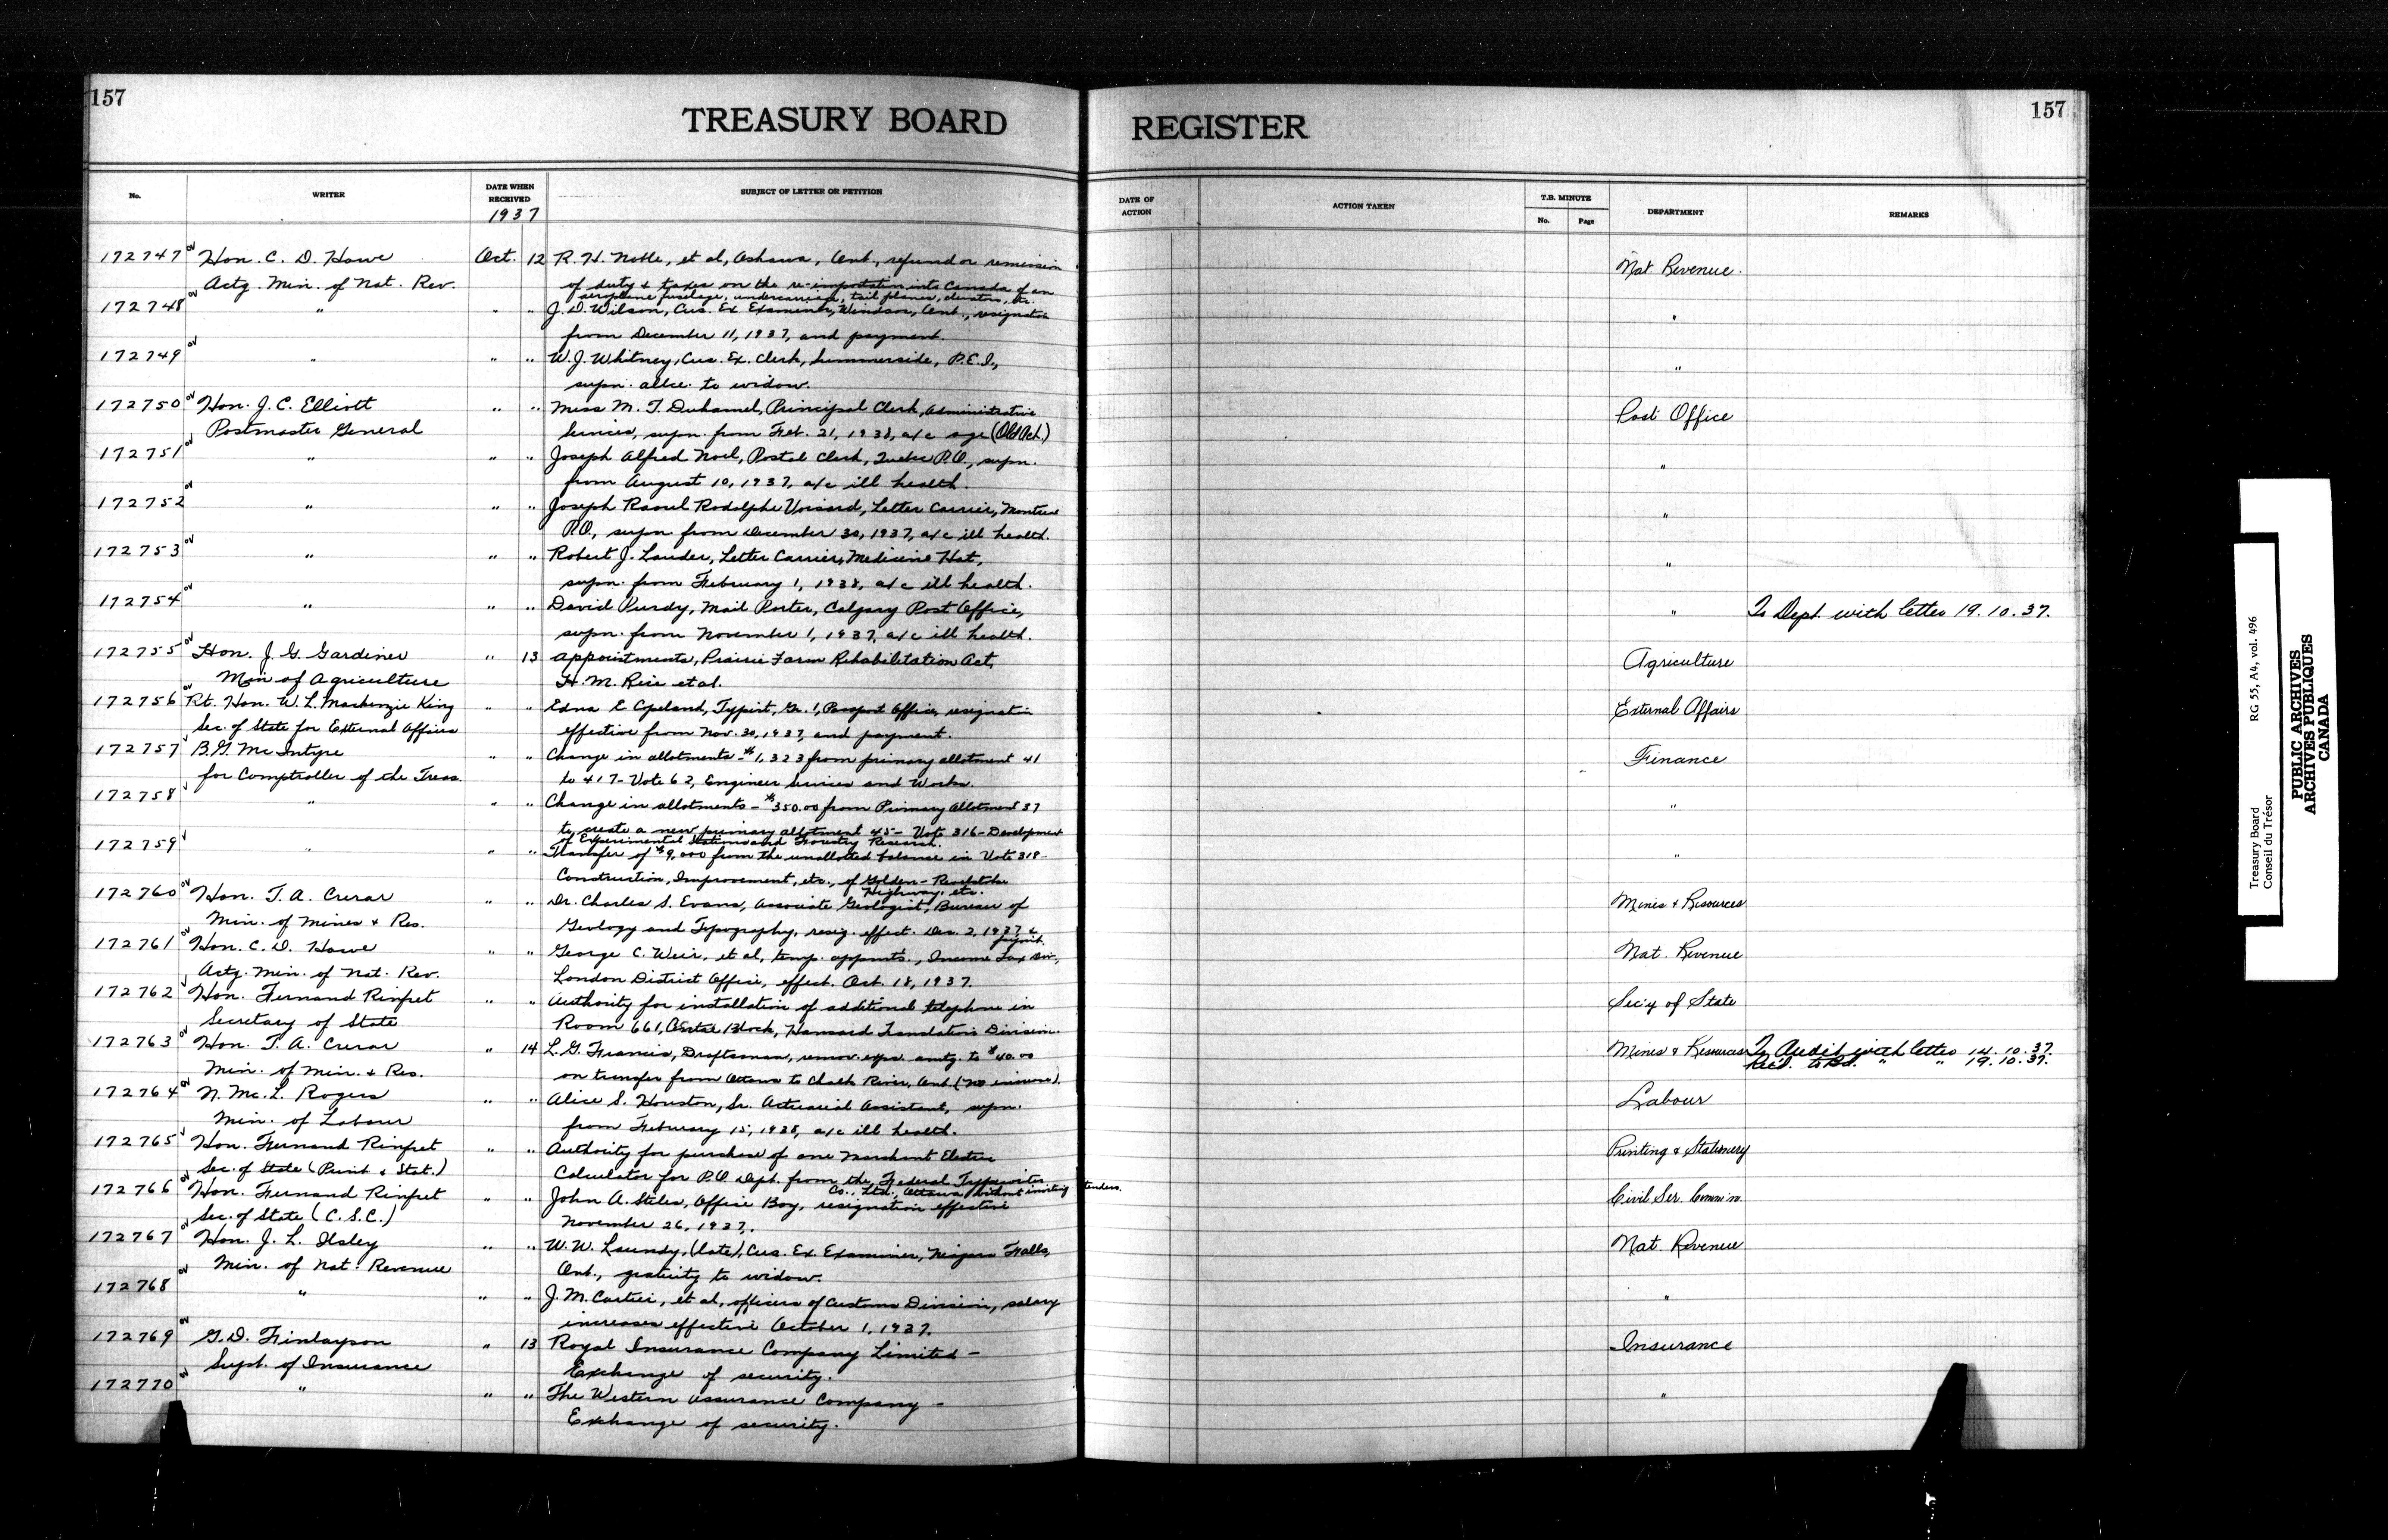 157
TREASURY BOARD REGISTER
157
No. WRITER DATE WHEN RECEIVED 1937 SUBJECT OF LETTER OR PETITION DATE OF ACTION ACTION TAKEN T.B. MINUTE No. Page DEPARTMENT REMARKS
172747 Hon. C. D. Howe Oct. 12 R. H. Noble, et al, Oshawa, Ont., refund or remission Nat. Revenue.
Actg. Min. of Nat. Rev. of duty & taxes on the re-importation into Canada of an
aeroplane fuselage, undercarriage, tail planes, elevators, etc.
172748 " " " J. D. Wilson, Cus. Ex. Examiner, Windsor, Ont., resignation "
from December 11, 1937, and payment.
172749 " " " W. J. Whitney, Cus. Ex. Clerk, Summerside, P.E.I., "
supn. allce. to widow.
172750 Hon. J. C. Elliott " " Miss M. T. Duhamel, Principal Clerk, Administrative Post Office
Postmaster General Services, supn. from Feb. 21, 1938, a/c age (Old Act.)
172751 " " " Joseph Alfred Noel, Postal Clerk, Quebec P.O., supn. "
from August 10, 1937, a/c ill health.
172752 " " " Joseph Raoul Rodolphe Voisard, Letter Carrier, Montreal "
P.O., supn. from December 30, 1937, a/c ill health.
172753 " " " Robert J. Lauder, Letter Carrier, Medicine Hat, "
supn. from February 1, 1938, a/c ill health.
172754 " " " David Purdy, Mail Porter, Calgary Post Office, " To Dept. with letter 19.10.37.
supn. from November 1, 1937, a/c ill health.
172755 Hon. J. G. Gardiner " 13 Appointments, Prairie Farm Rehabilitation Act, Agriculture
Min of Agriculture H. M. Rice et al.
172756 Rt. Hon. W. L. Mackenzie King " " Edna E. Copeland, Typist, Gr. 1, Passport Office, resignation External Affairs
Sec. of State for External Affairs effective from Nov. 30, 1937, and payment.
172757 B. G. McIntyre " " Change in allotments - $1,323 from primary allotment 41 Finance
for Comptroller of the Treas. to 417 - Vote 62, Engineer Services and Works.
172758 " " " Change in allotments - $350.00 from Primary Allotment 37 "
to create a new primary allotment 45 - Vote 316 - Development
of Experimental Stations and Forestry Research.
172759 " " " Transfer of $9,000 from the unallotted balance in Vote 318 - "
Construction, Improvement, etc., of Golden - Revelstoke
Highway, etc.
172760 Hon. T. A. Crerar " " Dr. Charles S. Evans, Associate Geologist, Bureau of Mines & Resources
Min. of Mines & Res. Geology and Topography, resig. effect. Dec. 2, 1937 &
paymt.
172761 Hon. C. D. Howe " " George C. Weir, et al, temp. appmts., Income Tax Div., Nat. Revenue
Actg. Min. of Nat. Rev. London District Office, effect. Oct. 18, 1937.
172762 Hon. Fernand Rinfret " " Authority for installation of additional telephone in Sec'y of State
Secretary of State Room 661, Centre Block, Hansard Translation Division.
172763 Hon. T. A. Crerar " 14 L. G. Francis, Draftsman, remov. exps. amtg. to $40.00 Mines & Resources To Audit with letter 14.10.37.
Min. of Min. & Res. on transfer from Ottawa to Chalk River, Ont. (no increase). Rec'd. to Bd. " " 19.10.37.
172764 N. Mc. L. Rogers " " Alice S. Houston, Sr. Actuarial Assistant, supn. Labour
Min. of Labour from February 15, 1938, a/c ill health.
172765 Hon. Fernand Rinfret " " Authority for purchase of one Marchant Electric Printing & Stationery
Sec. of State (Print & Stat.) Calculator for P.O. Dept. from the Federal Typewriter
Co., Ltd., Ottawa, without inviting tenders.
172766 Hon. Fernand Rinfret " " John A. Stiles, Office Boy, resignation effective Civil Ser. Comm'n.
Sec. of State (C.S.C.) November 26, 1937.
172767 Hon. J. L. Ilsley " " W. W. Laundy, (late), Cus. Ex. Examiner, Niagara Falls, Nat. Revenue
Min. of Nat. Revenue Ont., gratuity to widow.
172768 " " " J. M. Cartier, et al, officers of Customs Division, salary "
increases effective October 1, 1937.
172769 G. D. Finlayson " 13 Royal Insurance Company Limited - Insurance
Supt. of Insurance Exchange of security.
172770 " " " The Western Assurance Company - "
Exchange of security.
Treasury Board RG 55, A4, vol. 496
Conseil du Trésor
PUBLIC ARCHIVES
ARCHIVES PUBLIQUES
CANADA